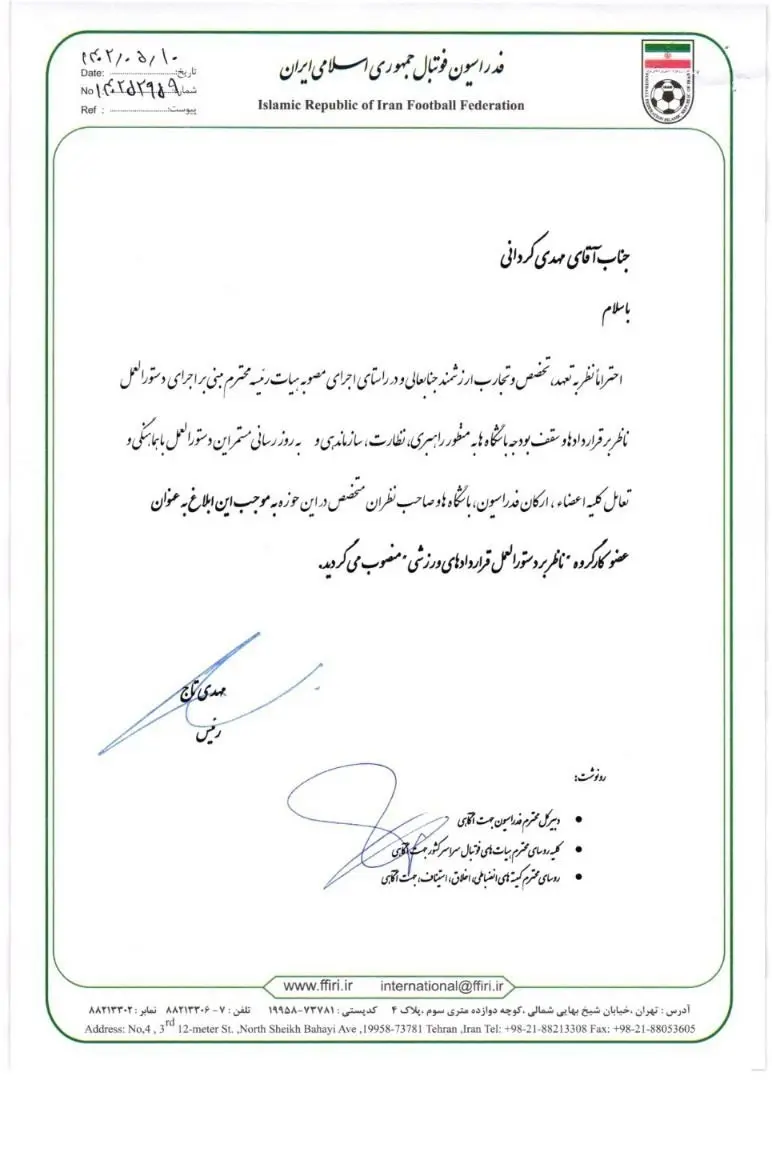 فدراسیون فوتبال جمهوری اسلامی ایران
Islamic Republic of Iran Football Federation
۱۴۰۲/۰۵/۱۰
Date: تاریخ:
No ۱۴۰۲۵۲۹۵۹ شماره
Ref : پیوست:
جناب آقای مهدی کردانی
باسلام
احتراماً نظر به تعهد، تخصص و تجارب ارزشمند جنابعالی و در راستای اجرای مصوبه هیات رئیسه محترم مبنی بر اجرای دستورالعمل
ناظر بر قراردادها و سقف بودجه باشگاه ها به منظور راهبری، نظارت، سازماندهی و به روز رسانی مستمر این دستورالعمل با هماهنگی و
تعامل کلیه اعضاء ، ارکان فدراسیون، باشگاه ها و صاحب نظران متخصص در این حوزه به موجب این ابلاغ به عنوان
عضو کارگروه "ناظر بر دستورالعمل قراردادهای ورزشی" منصوب می گردید.
مهدی تاج
رئیس
رونوشت:
• دبیرکل محترم فدراسیون جهت آگاهی
• کلیه روسای محترم هیات های فوتبال سراسر کشور جهت آگاهی
• روسای محترم کمیته های انضباطی، اخلاق، استیناف، جهت آگاهی
www.ffiri.ir international@ffiri.ir
آدرس : تهران ،خیابان شیخ بهایی شمالی ،کوچه دوازده متری سوم ،پلاک ۴ کدپستی : ۷۳۷۸۱-۱۹۹۵۸ تلفن : ۷ - ۸۸۲۱۳۳۰۶ نمابر : ۸۸۲۱۳۳۰۲
Address: No,4 , 3rd 12-meter St. ,North Sheikh Bahayi Ave ,19958-73781 Tehran ,Iran Tel: +98-21-88213308 Fax: +98-21-88053605